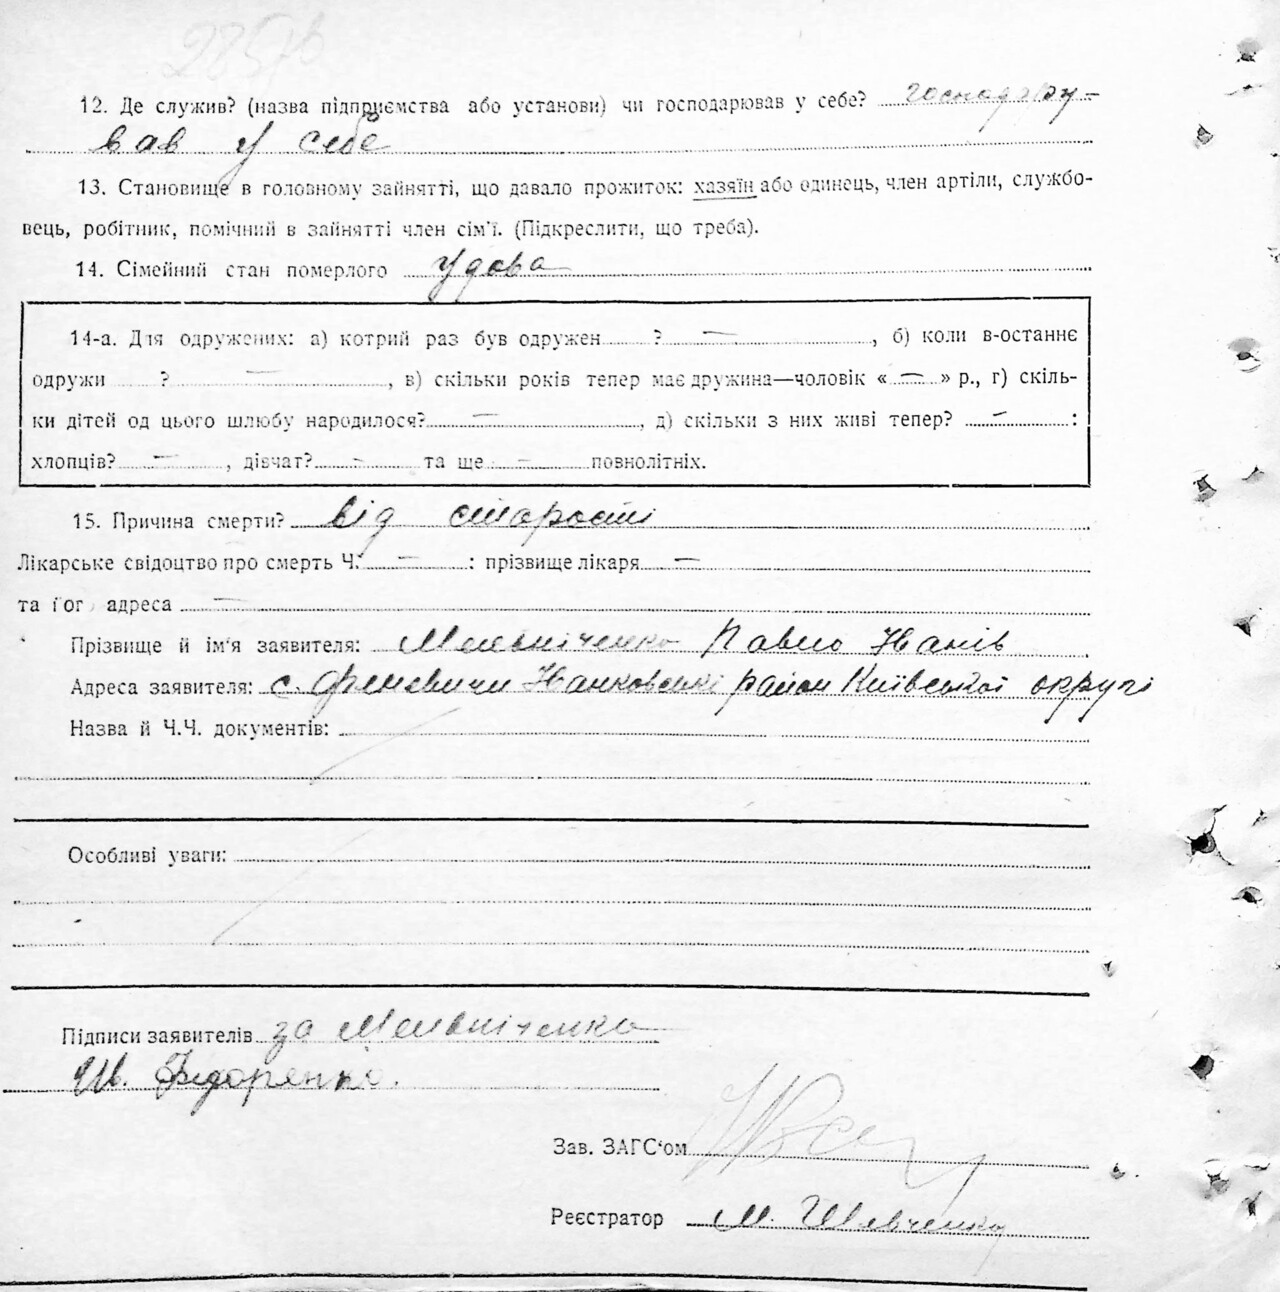 12. Де служив? (назва підприємства або установи) чи господарював у себе? господарю-
вав у себе
13. Становище в головному зайнятті, що давало прожиток: хазяїн або одинець, член артіли, службо-
вець, робітник, помічний в зайнятті член сім'ї. (Підкреслити, що треба).
14. Сімейний стан померлого Удова
14-а. Для одружених: а) котрий раз був одружен ? —, б) коли в-останнє
одружи ? —, в) скільки років тепер має дружина—чоловік « — » р., г) скіль-
ки дітей од цього шлюбу народилося? —, д) скільки з них живі тепер? — :
хлопців? —, дівчат? — та ще — повнолітніх.
15. Причина смерти? від старости
Лікарське свідоцтво про смерть Ч. — : прізвище лікаря —
та його адреса —
Прізвище й ім'я заявителя: Мельніченко Павло Іванів
Адреса заявителя: с. Феневичи Іванковські район Київської округі
Назва й Ч.Ч. документів:
Особливі уваги:
Підписи заявителів за Мельніченка
Ів. Фідоренко.
Зав. ЗАГС'ом
Реєстратор М. Шевченко